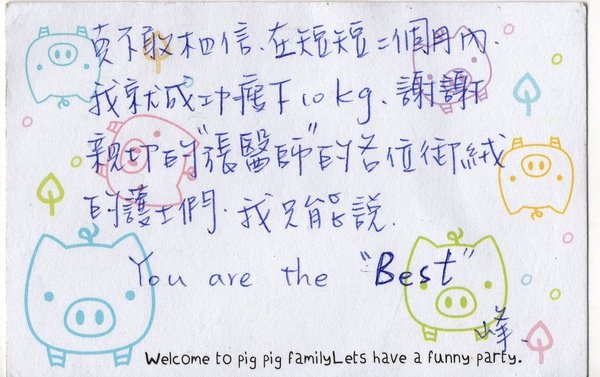 真不敢相信.在短短二個月內.
我就成功瘦下10kg.謝謝
親切的"張醫師"的各位御絨
的護士們.我只能說.
You are the "Best"
峰.
Welcome to pig pig familyLets have a funny party.